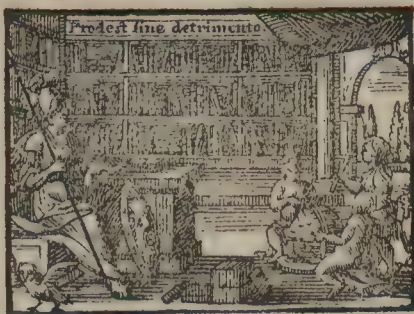 Prodest sine detrimento.